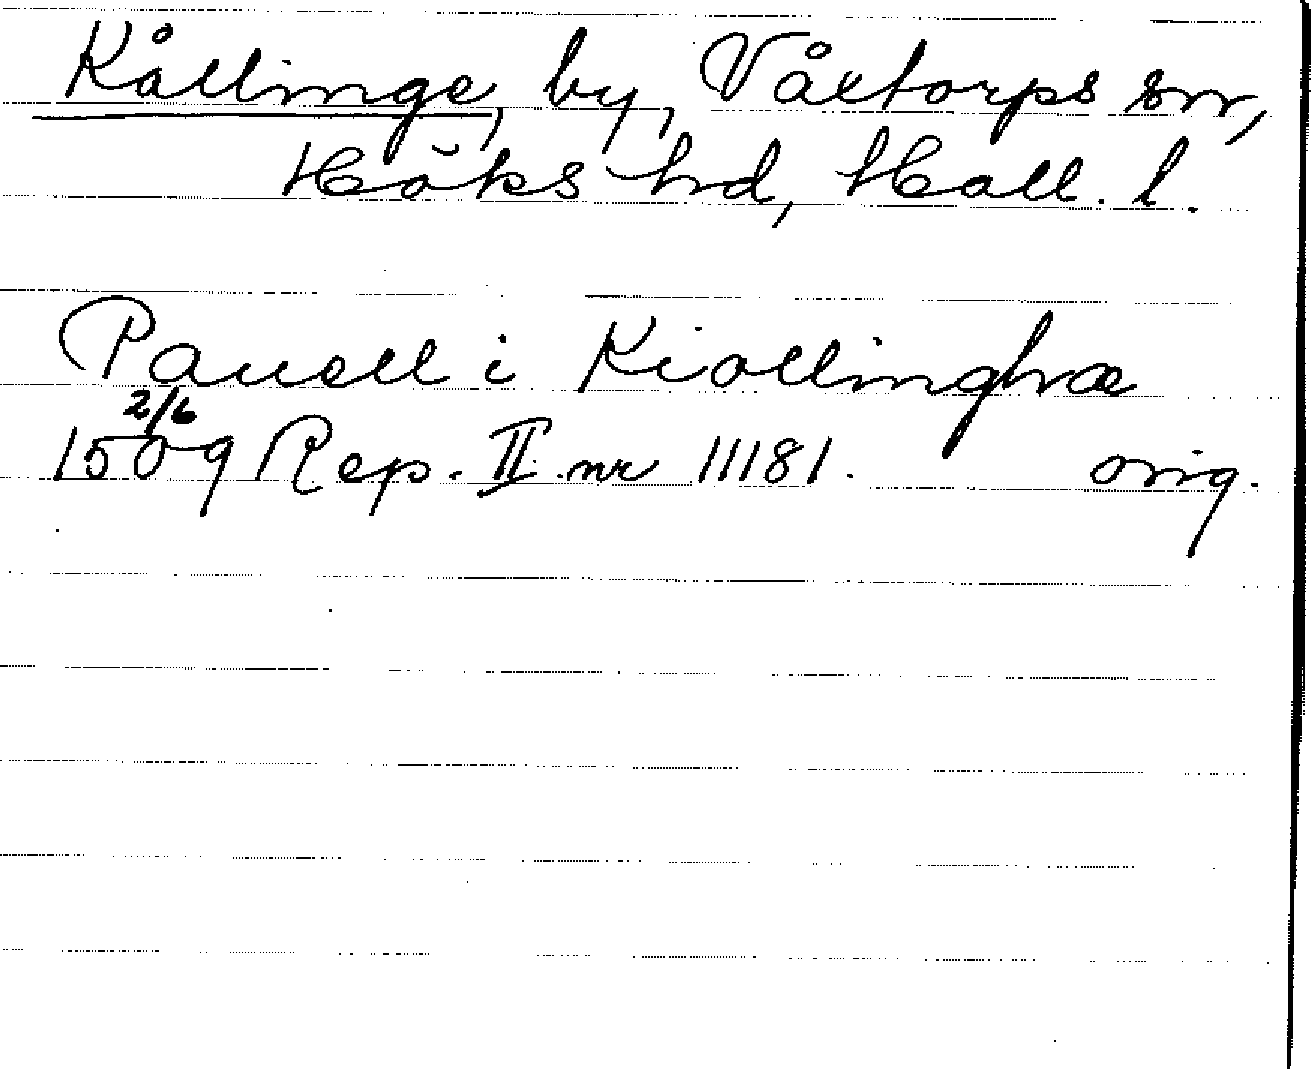 Kållinge, by, Våxtorps sn,
Höks hd, Hall. l.
Pauell i Kiollinghæ
2/6
1509 Rep. II nr 11181. orig.